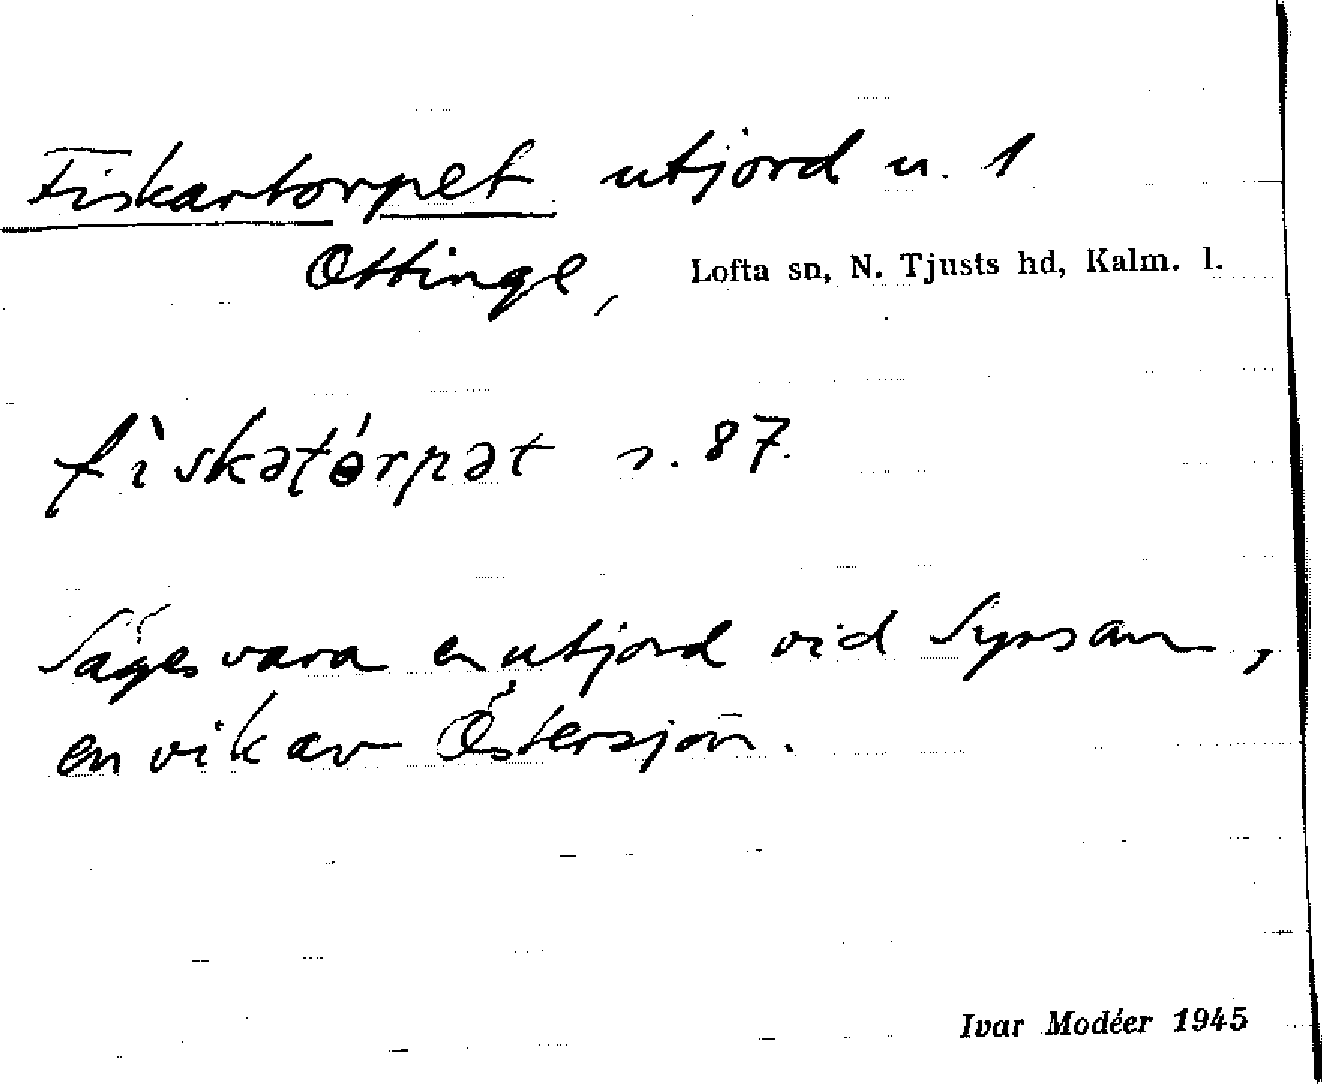 Fiskartorpet utjord u. 1
Ottinge, Lofta sn, N. Tjusts hd, Kalm. l.
fìskətórpət s. 87.
Säges vara en utjord vid Syrsan,
en vik av Östersjön.
Ivar Modéer 1945